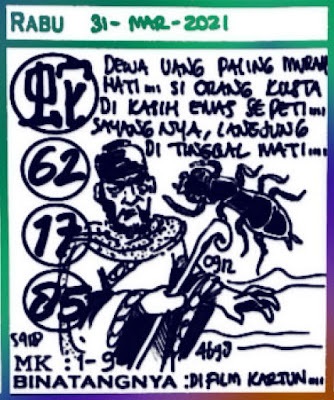 RABU 31-MAR-2021
DEWA UANG PALING MURAH
HATI... SI ORANG KUSTA
DI KASIH EMAS SEPETI...
SAYANGNYA, LANGSUNG
DI TINGGAL MATI...
62
17
85
MK : 1-9
BINATANGNYA : DI FILM KARTUN...